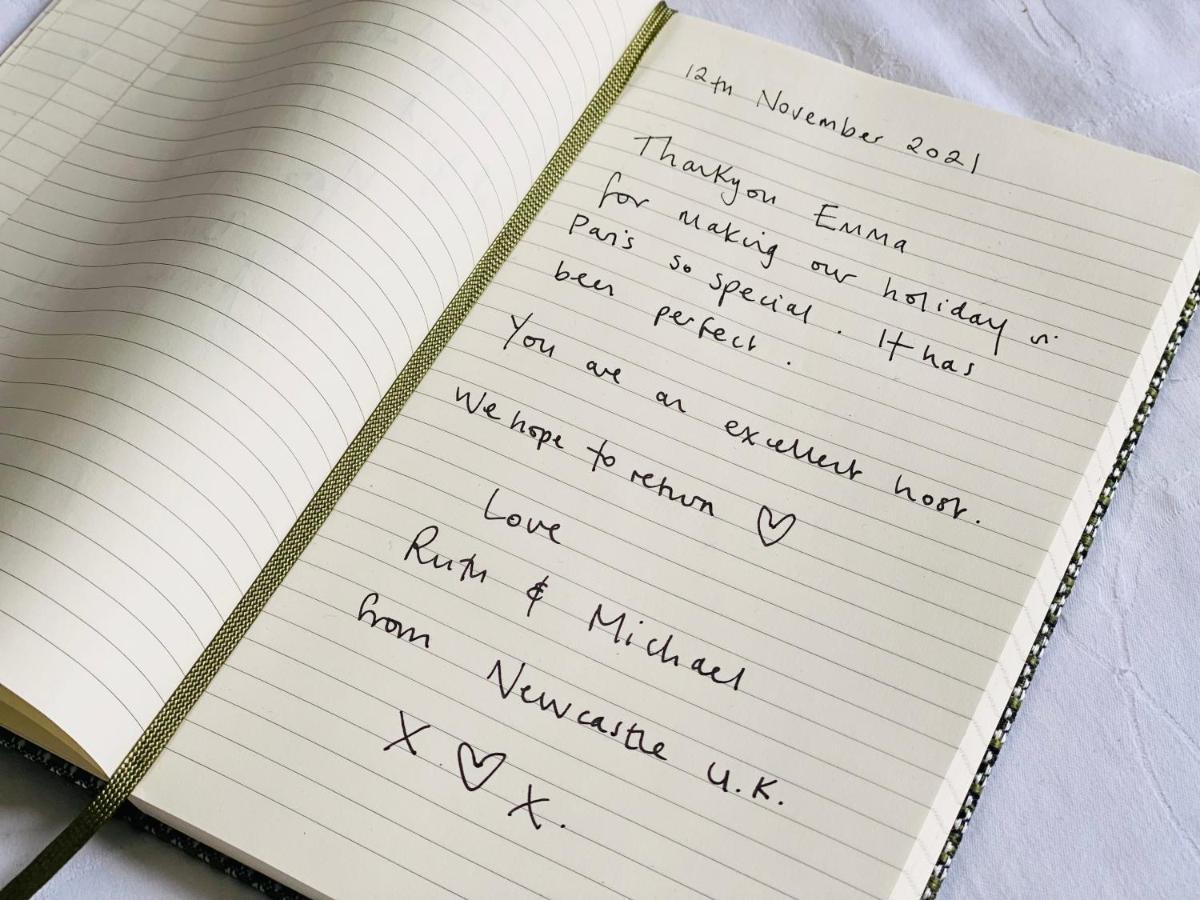 12th November 2021
Thankyou Emma
for making our holiday in
Paris so special. It has
been perfect.
You are an excellent host.
We hope to return ♡
Love
Ruth & Michael
from Newcastle U.K.
X ♡ X.